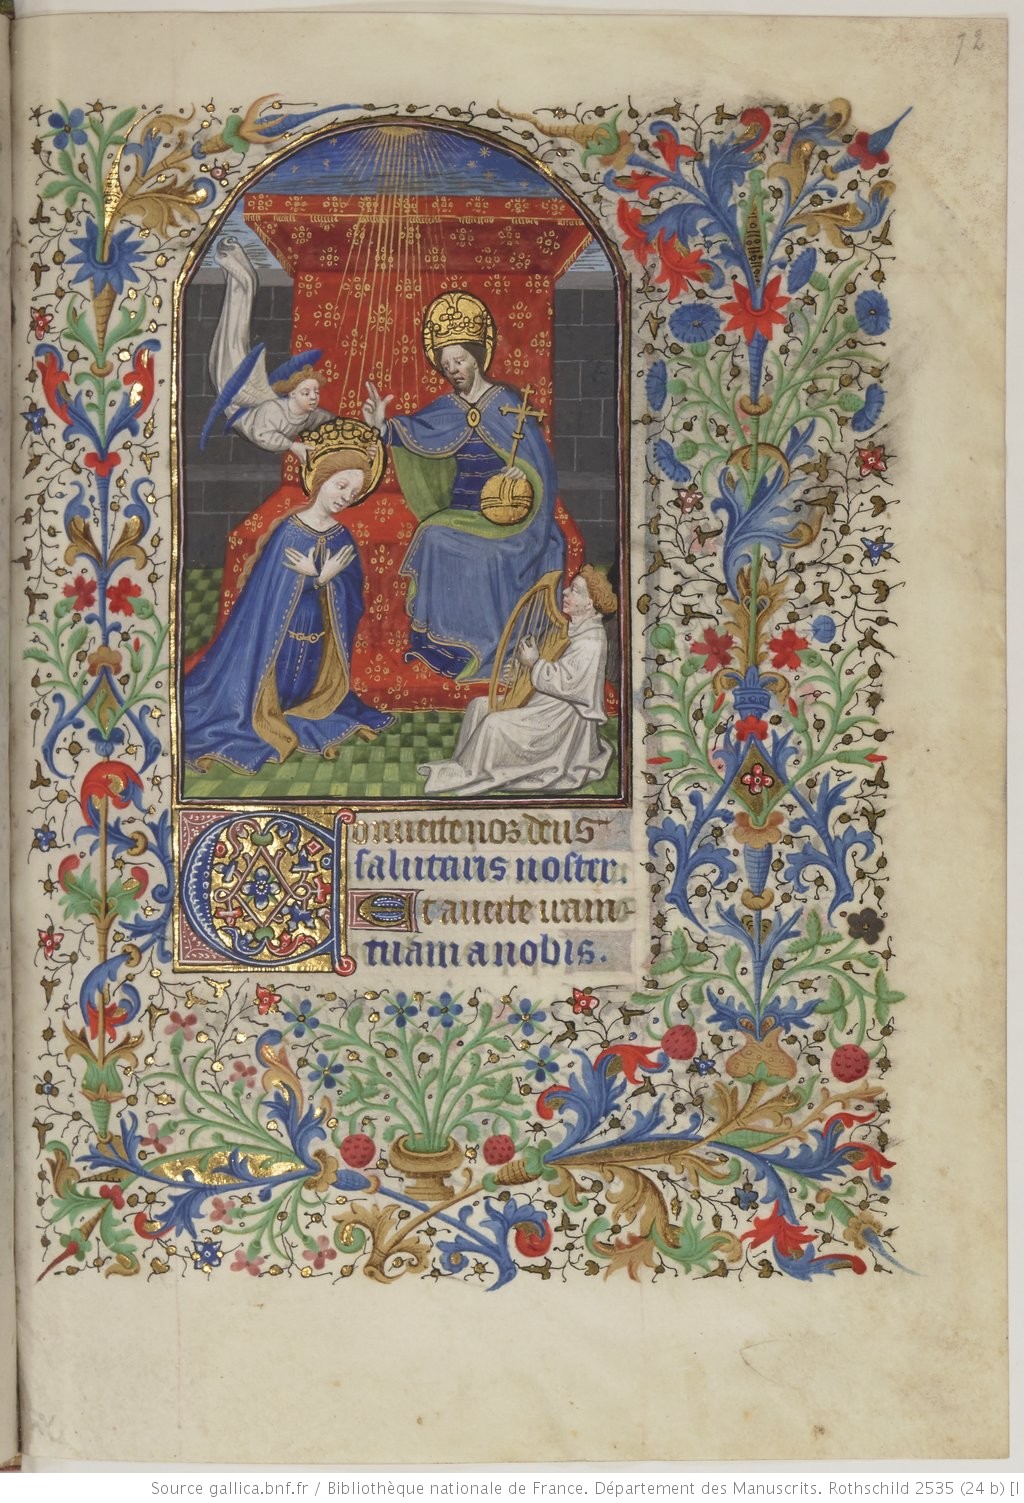 92
Conuerte nos deus
salutaris noster.
Et auerte iram
tuam a nobis.
Source gallica.bnf.fr / Bibliothèque nationale de France. Département des Manuscrits. Rothschild 2535 (24 b) [I